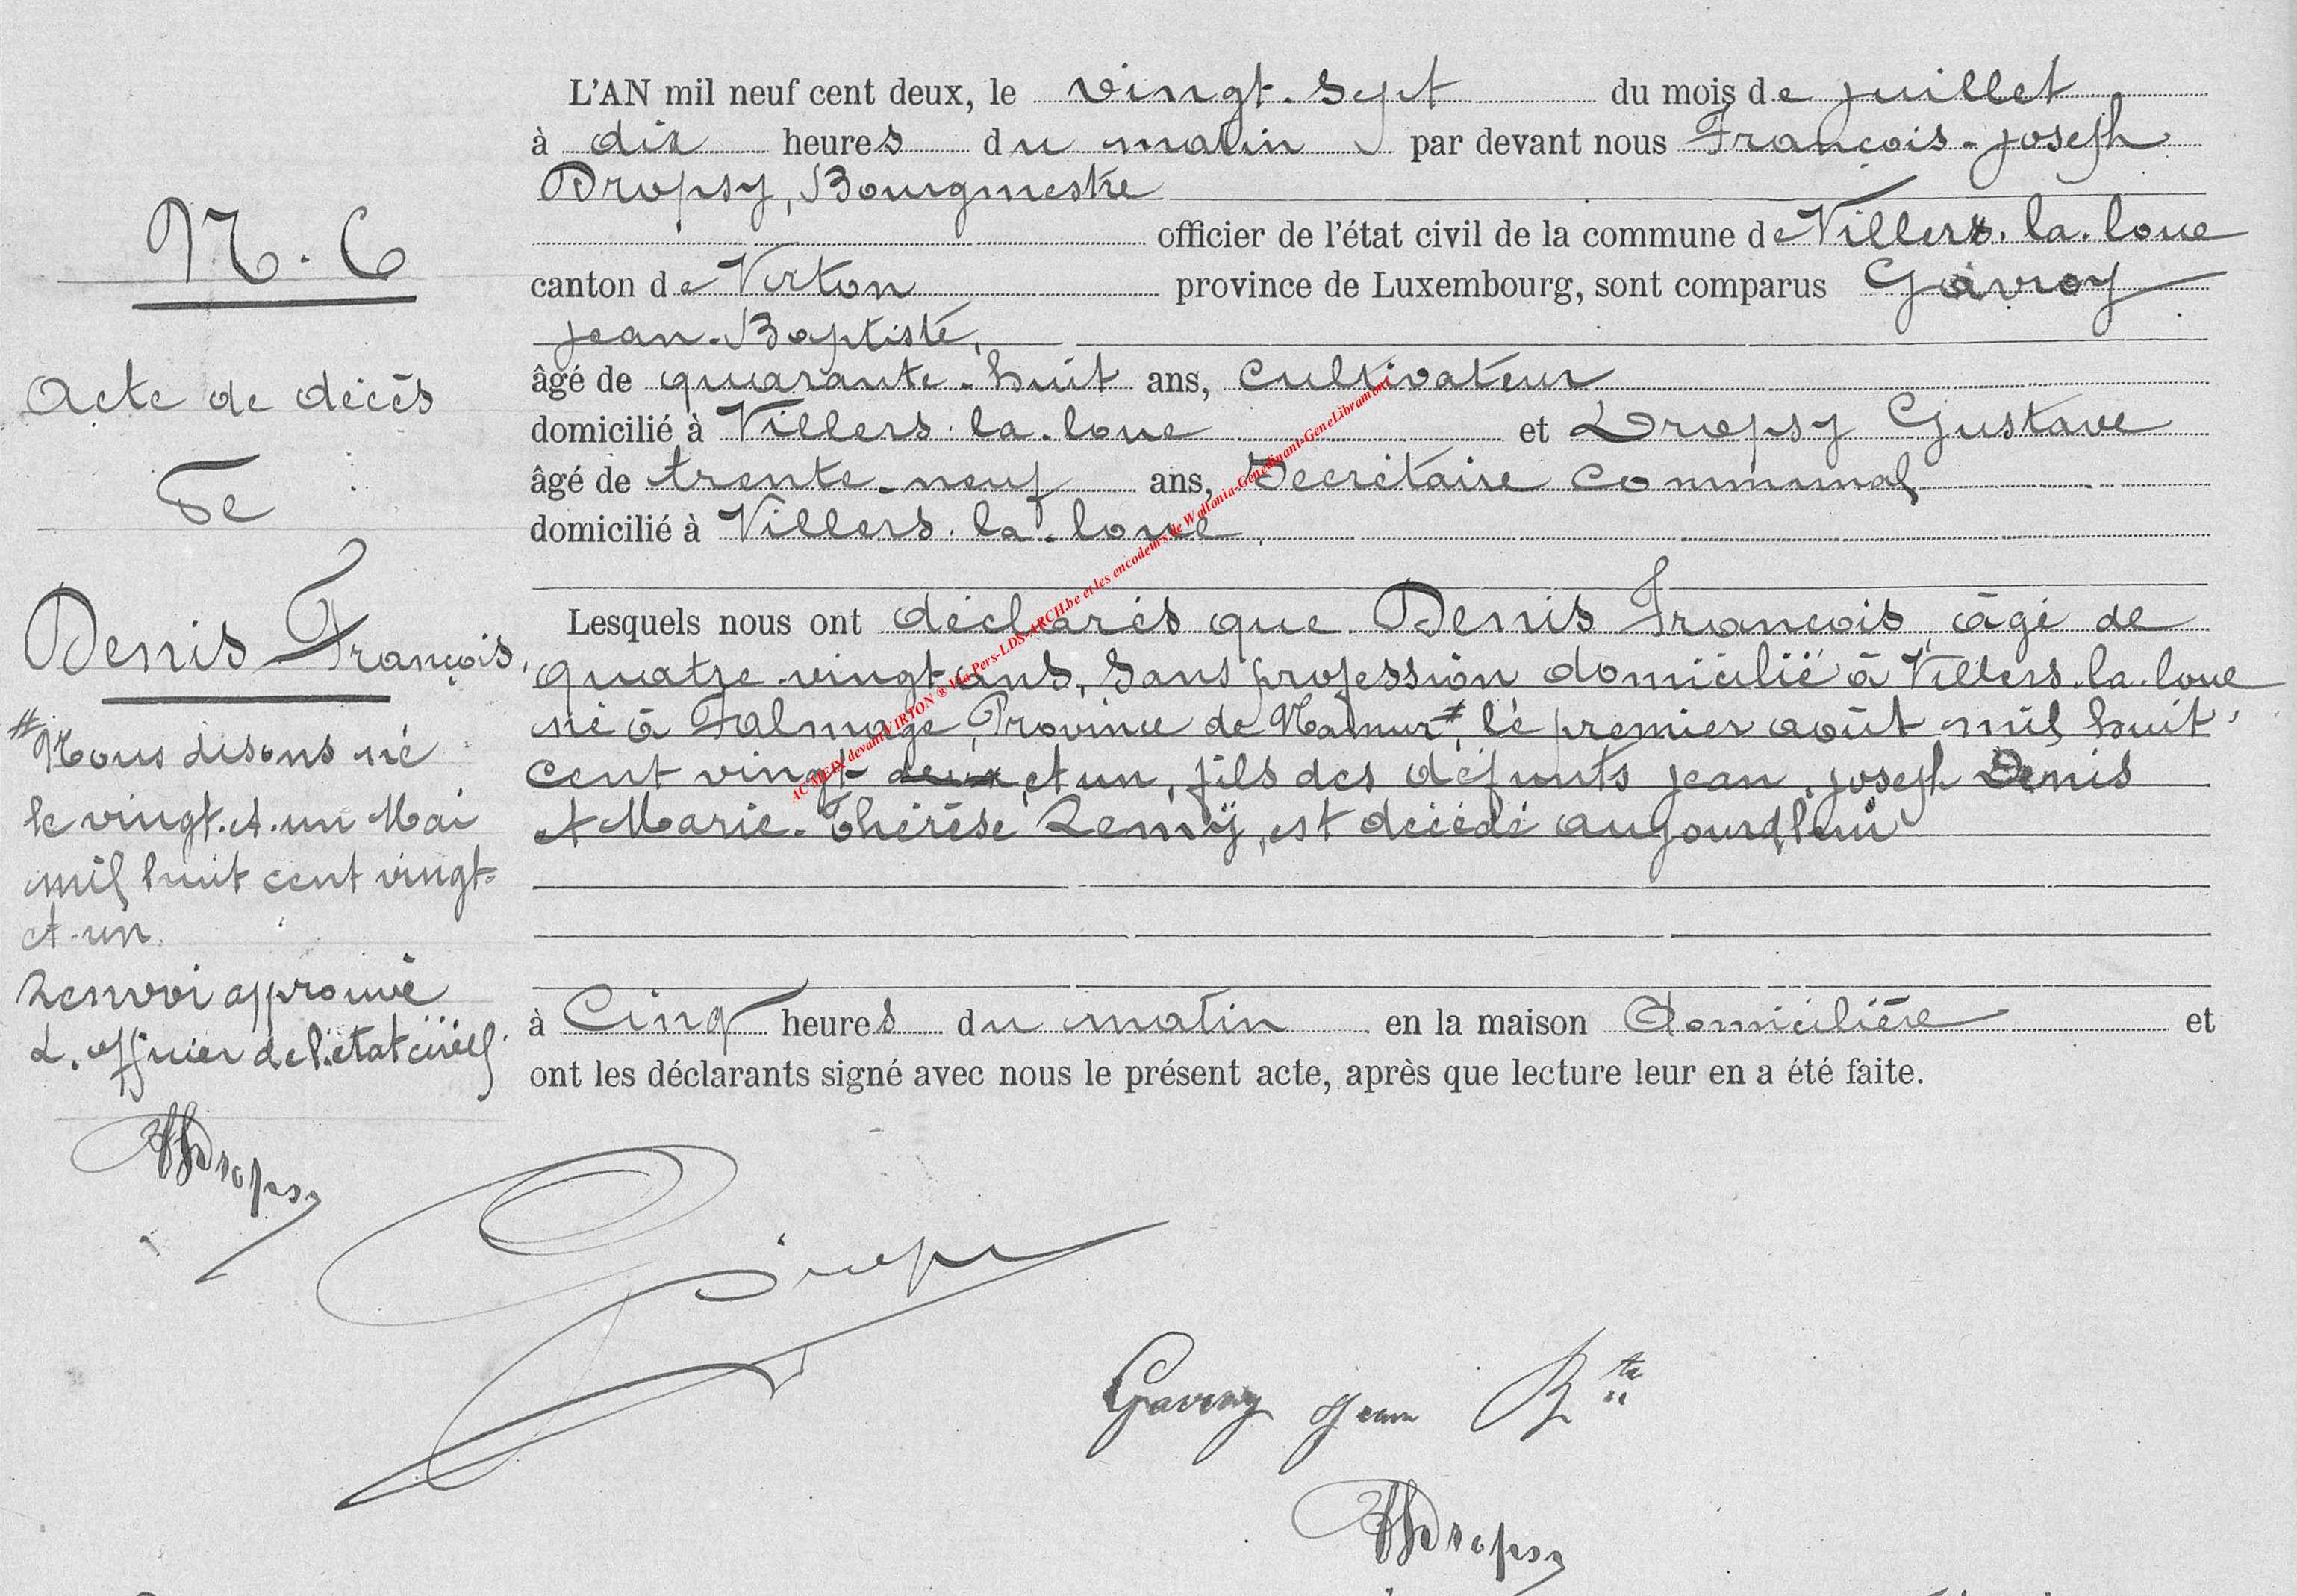 N. 6
Acte de décès
De
Denis François,
# Nous disons né
le vingt-et-un Mai
mil huit cent vingt-
et-un.
Renvoi approuvé
L. officier de l'état civil
FJDropsy
L'AN mil neuf cent deux, le vingt-sept du mois de juillet
à dix heures du matin par devant nous François-joseph
Dropsy, Bourgmestre
officier de l'état civil de la commune de Villers-la-loue
canton de Virton province de Luxembourg, sont comparus Gavroy
jean-Baptiste,
âgé de quarante-huit ans, Cultivateur
domicilié à Villers-la-loue et Dropsy Gustave
âgé de trente-neuf ans, Secrétaire Communal
domicilié à Villers-la-loue.
Lesquels nous ont déclarés que Denis François, âgé de
quatre-vingt ans, sans profession domicilié à Villers-la-loue
né à Falmage, Province de Namur #, le premier août mil huit
cent vingt-deux, et un, fils des défunts jean-joseph Denis
et Marie-Thérèse Remÿ, est décédé aujourd'hui
à Cinq heures du matin en la maison Domicilière et
ont les déclarants signé avec nous le présent acte, après que lecture leur en a été faite.
Gavroy Jean Bte
FJDropsy